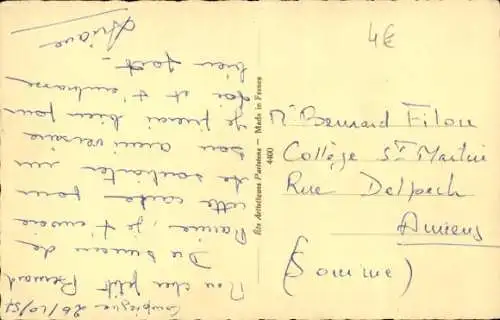 Compiègne 26/10/51
Mon cher petit Bernard
Du bureau de
Mamie, je t'envoie
cette carte pour
te souhaiter un
bon anniversaire
Je prierai bien pour
toi et t'embrasse
bien fort.
Ariane
4€
Ets Artistiques Parisiens — Made in France
4400
Mr Bernard Filou
Collège St Martin
Rue Delpech
Amiens
(Somme)